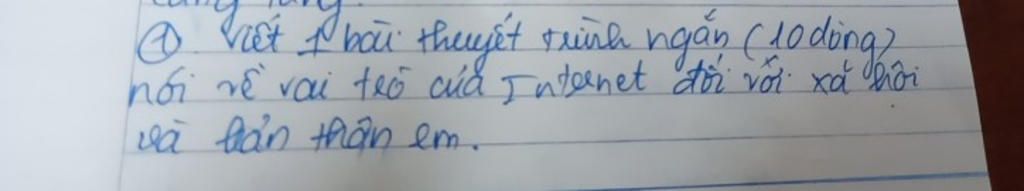 ① Viết 1 bài thuyết trình ngắn (10 dòng)
nói về vai trò của Internet đối với xã hội
và bản thân em.